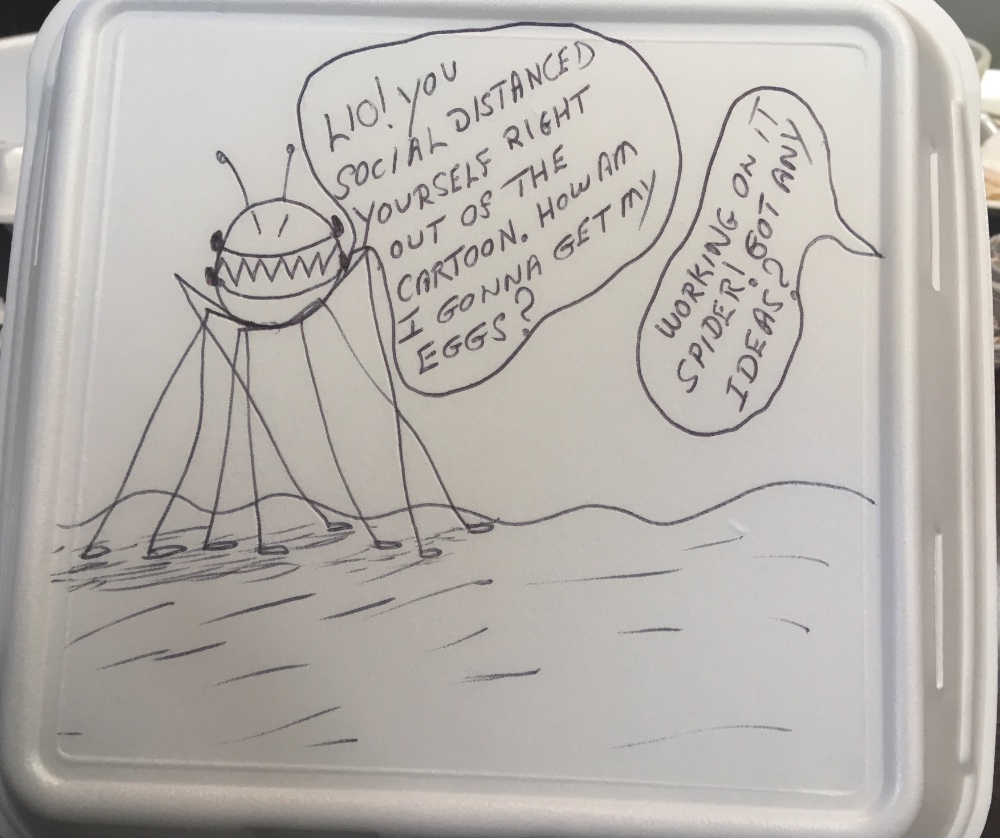 LIO! YOU
SOCIAL DISTANCED
YOURSELF RIGHT
OUT OF THE
CARTOON. HOW AM
I GONNA GET MY
EGGS?
WORKING ON IT
SPIDER! GOT ANY
IDEAS?